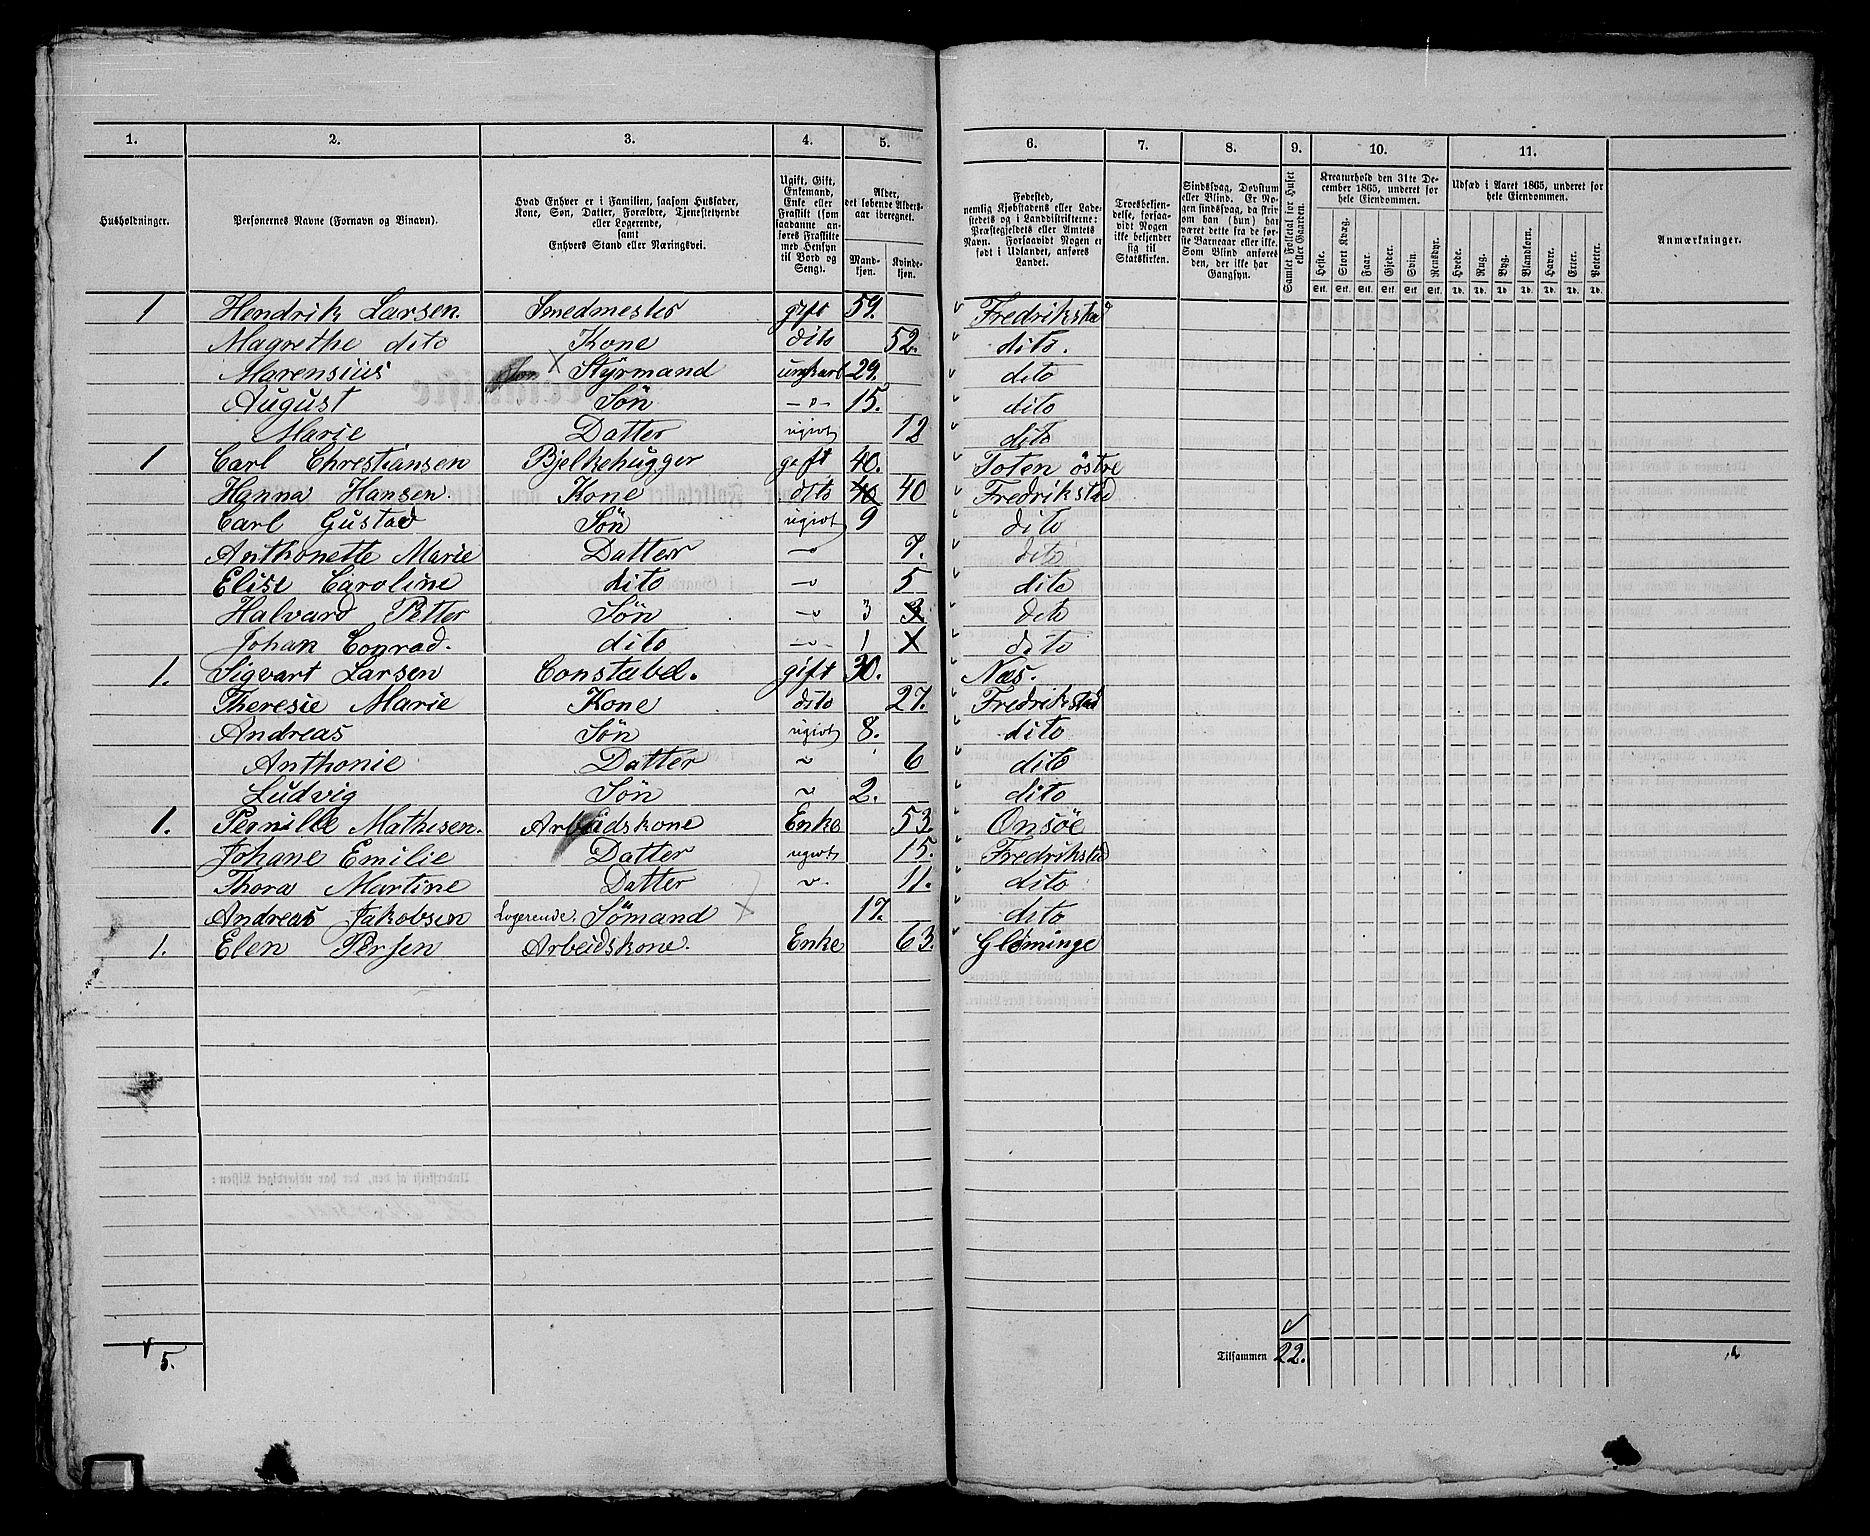 1. 2. 3. 4. 5. 6. 7. 8. 9. 10. 11.
Husholdninger.
Personernes Navne (Fornavn og Binavn).
Hvad Enhver er i Familien, saasom Husfader,
Kone, Søn, Datter, Forældre, Tjenestetyende
eller Logerende,
samt
Enhvers Stand eller Næringsvei.
Ugift, Gift,
Enkemand,
Enke eller
Fraskilt (som
saadanne an-
føres Fraskilte
med Hensyn
til Bord og
Seng).
Alder,
det løbende Alders-
aar iberegnet.
Mand-
kjøn.
Kvinde-
kjøn.
Fødested,
nemlig Kjøbstadens eller Lade-
stedets og i Landdistrikterne:
Præstegjeldets eller Amtets
Navn. Forsaavidt Nogen er
født i Udlandet, anføres
Landet.
Troesbekjen-
delse, forsaa-
vidt Nogen
ikke bekjender
sig til
Statskirken.
Sindssvag, Døvstum
eller Blind. Er No-
gen sindssvag, da skriv
om han (hun) har
været dette fra de før-
ste Barneaar eller ikke.
Som Blind anføres
den, der ikke har
Gangsyn.
Samlet Folketal for Huset
eller Gaarden.
Kreaturhold den 31te De-
cember 1865, underet for
hele Eiendommen.
Heste. Stort Kvæg. Faar. Gjeder. Svin. Rensdyr.
Stk. Stk. Stk. Stk. Stk. Stk.
Udsæd i Aaret 1865, underet for
hele Eiendommen.
Hvede. Rug. Byg. Blandkorn. Havre. Erter. Poteter.
Td. Td. Td. Td. Td. Td. Td.
Anmærkninger.
1 Hendrik Larsen. Smedmester gift 59. Fredrikstad
Magrethe dito Kone dito 52. dito.
Marensius Styrmand ungkarl 29. dito
August Søn -〃- 15. dito
Marie Datter ugivt 12 dito
1 Carl Christiansen Bjelkehugger gift 40. Toten östre
Hanna Hansen. Kone dito 40 40 Fredrikstad
Carl Gustav Søn ugivt 9 dito
Anthonette Marie Datter -〃 7. dito
Elise Caroline dito -〃 5 dito
Halvard Petter Søn -〃 3 3 dito
Johan Conrad. dito -〃 1 dito
1. Sigvart Larsen Constabel. gift 30. Næs.
Theresie Marie Kone dito 27. Fredrikstad
Andreas Søn ugivt 8. dito
Anthonie Datter 〃 6 dito
Ludvig Søn 〃 2. dito
1. Pernille Mathisen. Arbeidskone Enke 53. Onsöe
Johane Emilie Datter ugivt 15. Fredrikstad
Thora Martine Datter 〃. 11. dito
Andreas Jakobsen Logerende. Sömand 17. dito
1. Elen Persen Arbeidskone. Enke 63. Gleminge
5. Tilsammen 22.